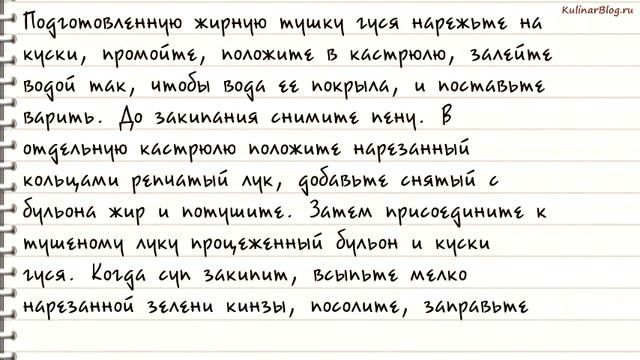 KulinarBlog.ru
Подготовленную жирную тушку гуся нарежьте на
куски, промойте, положите в кастрюлю, залейте
водой так, чтобы вода ее покрыла, и поставьте
варить. До закипания снимите пену. В
отдельную кастрюлю положите нарезанный
кольцами репчатый лук, добавьте снятый с
бульона жир и потушите. Затем присоедините к
тушеному луку процеженный бульон и куски
гуся. Когда суп закипит, всыпьте мелко
нарезанной зелени кинзы, посолите, заправьте